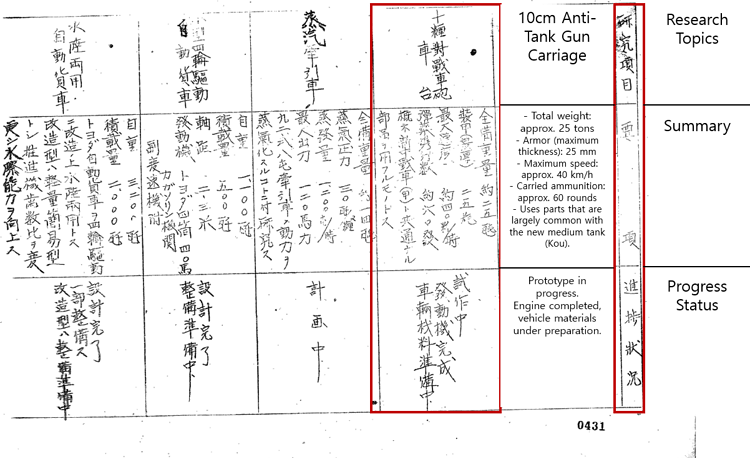 研究項目
要項
進捗狀況
Research
Topics
Summary
Progress
Status
10cm Anti-
Tank Gun
Carriage
- Total weight:
approx. 25 tons
- Armor (maximum
thickness): 25 mm
- Maximum speed:
approx. 40 km/h
- Carried ammunition:
approx. 60 rounds
- Uses parts that are
largely common with
the new medium tank
(Kou).
Prototype in
progress.
Engine completed,
vehicle materials
under preparation.
十糎對戰車砲
車台
全備重量 約二五瓲
装甲(最大) 二五粍
最大速度 約四〇粁/時
彈藥 約六〇發
新中戰車(甲)ト共通ナル
部品ヲ用フルモノトス
試作中
發動機完成
車輛材料準備中
蒸汽牽引車
全備重量 約一四瓲
蒸気圧力
蒸發量
最大出力 一二〇馬力
九二式八屯牽引車ノ動力ヲ
蒸氣化スルコトニ付研究ス
計画中
四輪驅動
自動貨車
自重 一一〇〇瓩
積載量 五〇〇瓩
軸距 二・三米
發動機 トヨダ四筒四〇馬
力ガソリン機関
副変速機附
設計完了
整備準備中
水陸両用
自動貨車
自重 三二〇〇瓩
積載量 二〇〇〇瓩
トヨダ自動貨車ヲ四輪驅動
ニ改造シ水陸両用トス
改造型ハ軽量簡易型
トシ推進機歯数比ヲ変
更シ水際能力ヲ向上ス
設計完了
一部整備ス
改造型ハ整備準備中
0431